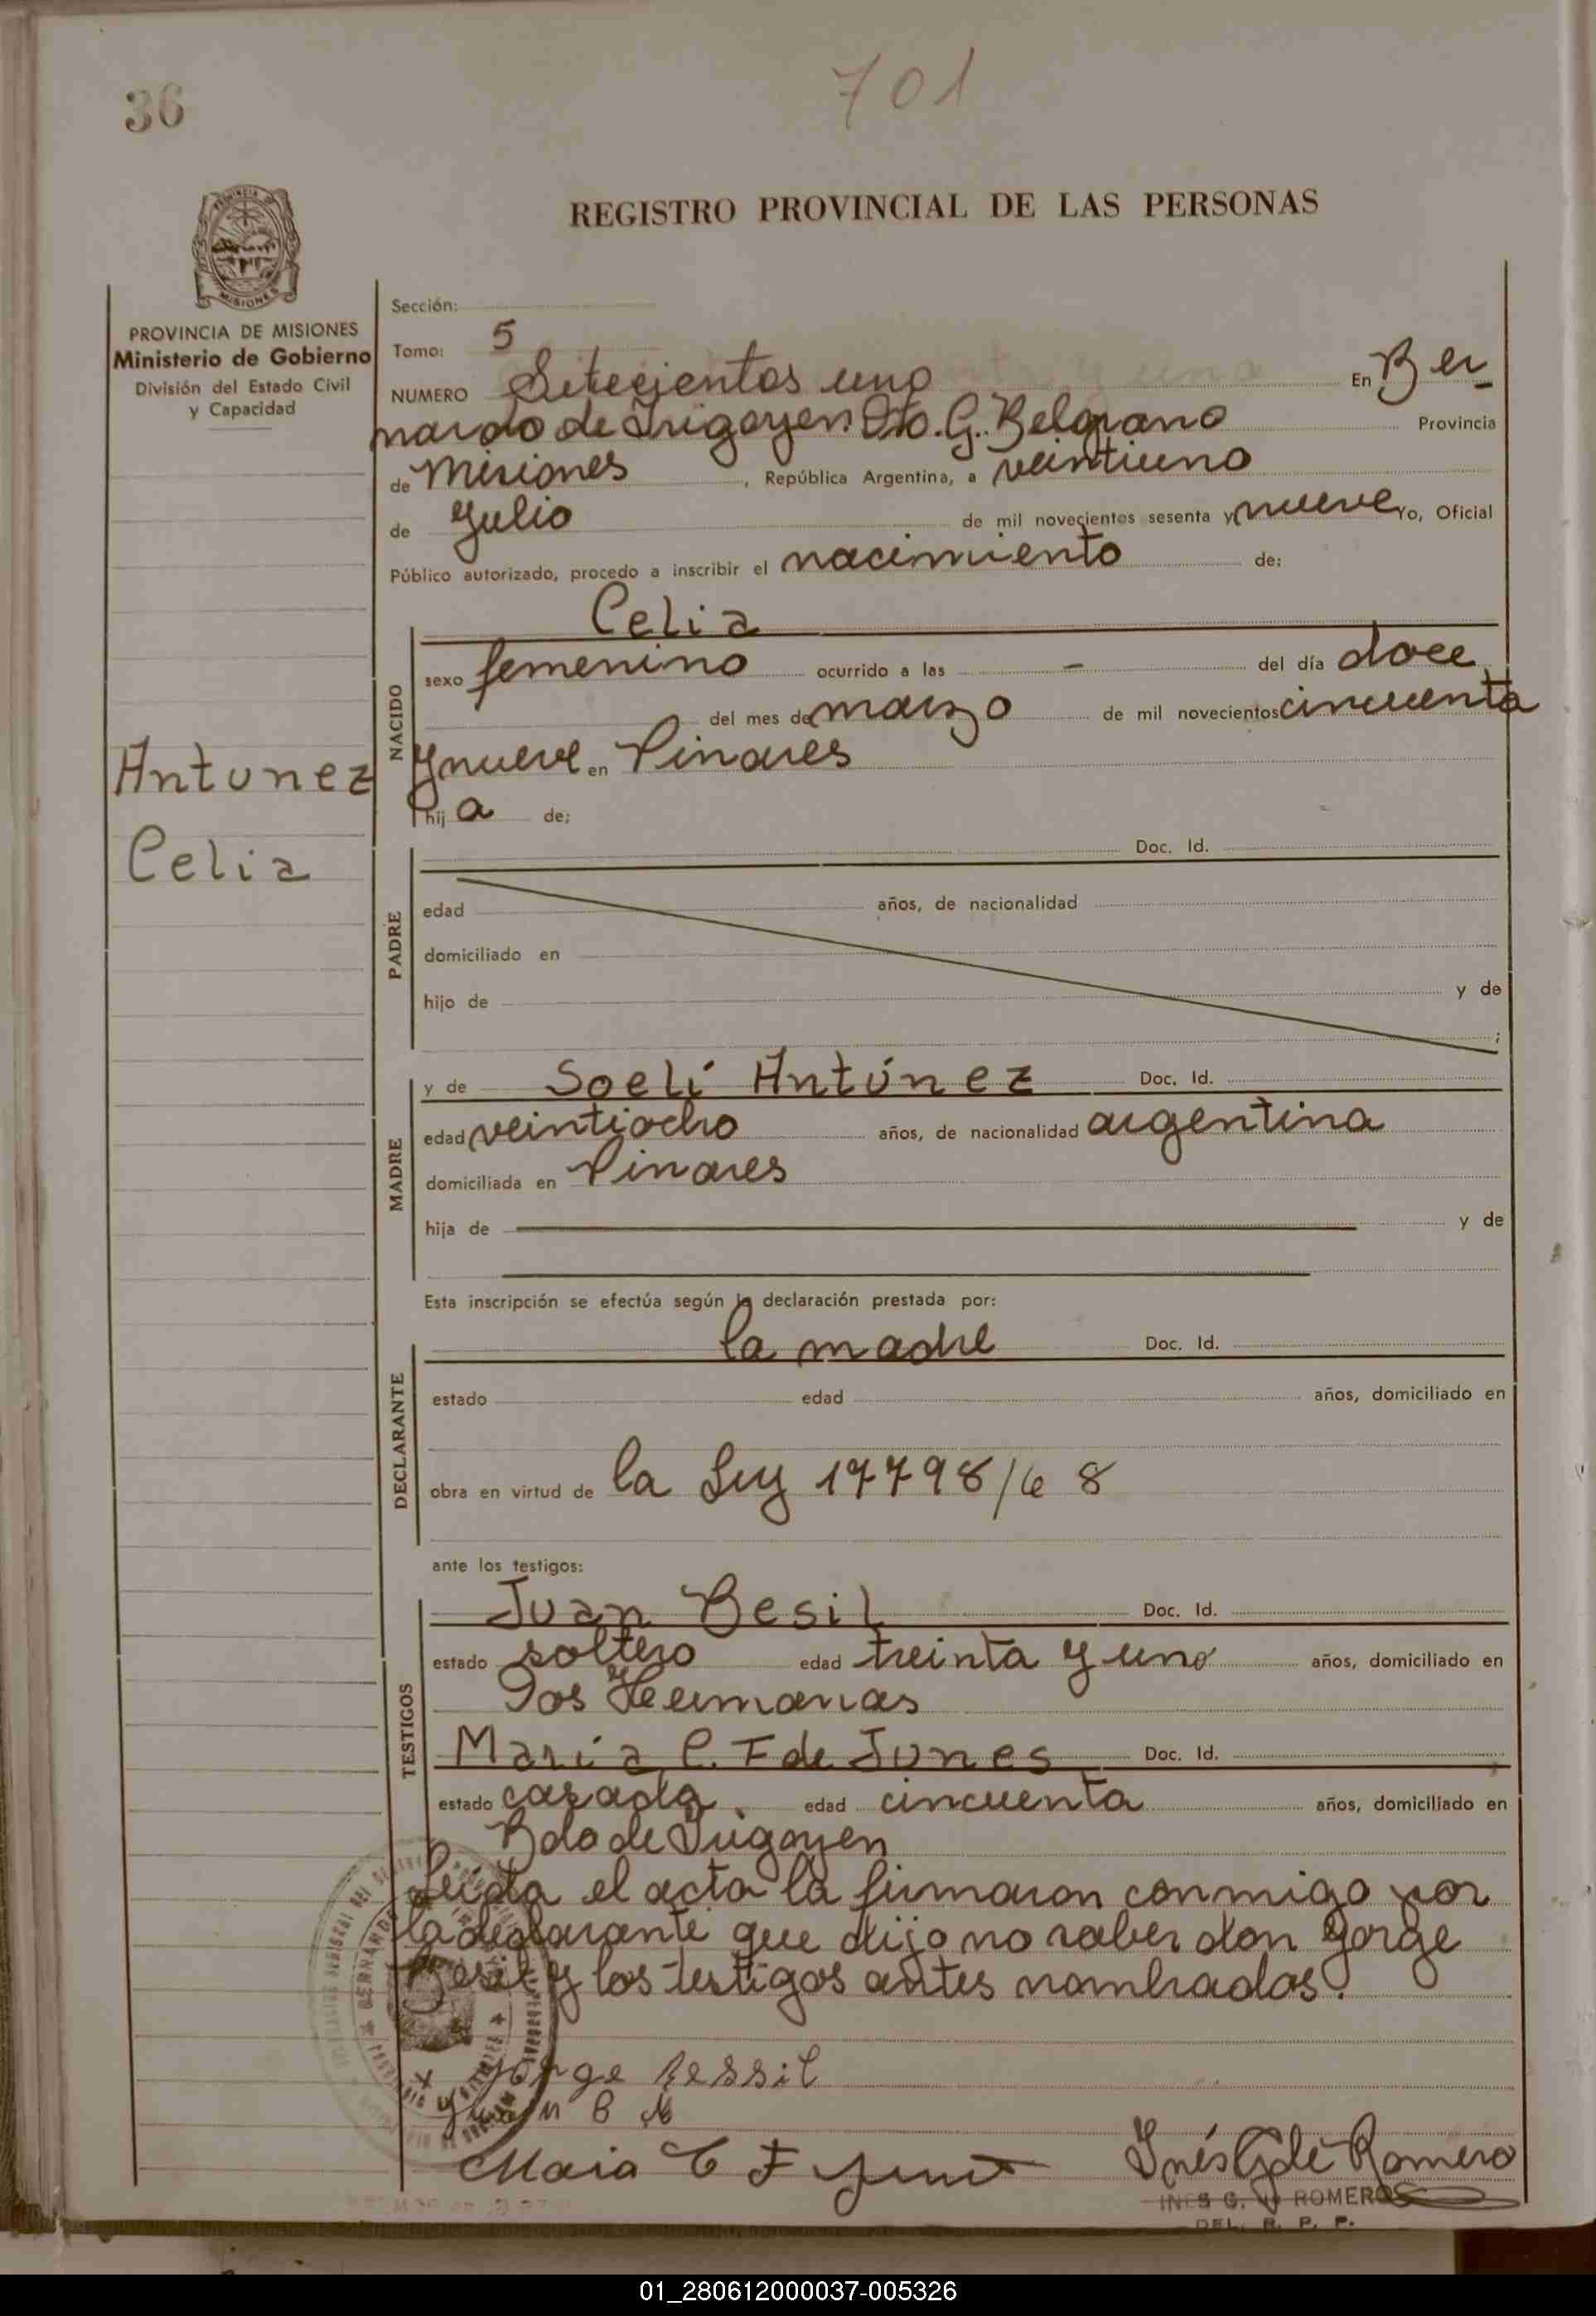 701
36
REGISTRO PROVINCIAL DE LAS PERSONAS
PROVINCIA DE MISIONES
Ministerio de Gobierno
División del Estado Civil
y Capacidad
Sección:
Tomo: 5
NUMERO Setecientos uno En Ber
nardo de Irigoyen Dto. G. Belgrano Provincia
de Misiones, República Argentina, a veintiuno
de Julio de mil novecientos sesenta y nueve Yo, Oficial
Público autorizado, procedo a inscribir el nacimiento de:
Celia
NACIDO
sexo femenino ocurrido a las - del día doce
del mes de marzo de mil novecientos cincuenta
y nueve en Pinares
hij a de;
Antunez
Celia
PADRE
Doc. Id.
edad años, de nacionalidad
domiciliado en
hijo de y de
;
MADRE
y de Soelí Antúnez Doc. Id.
edad veintiocho años, de nacionalidad argentina
domiciliada en Pinares
hija de y de
Esta inscripción se efectúa según la declaración prestada por:
DECLARANTE
la madre Doc. Id.
estado edad años, domiciliado en
obra en virtud de la Ley 17798/68
ante los testigos:
TESTIGOS
Juan Besil Doc. Id.
estado soltero edad treinta y uno años, domiciliado en
Dos Hermanas
María C. F de Junes Doc. Id.
estado casada. edad cincuenta años, domiciliado en
Bdo de Irigoyen
Leída el acta la firmaron conmigo por
la declarante que dijo no saber don Jorge
Besil y los testigos antes nombrados.
Jorge Bessil
Juan B
Maria C F
Inés G de Romero
INES G. de ROMERO
DEL. R. P. P.
01_280612000037-005326